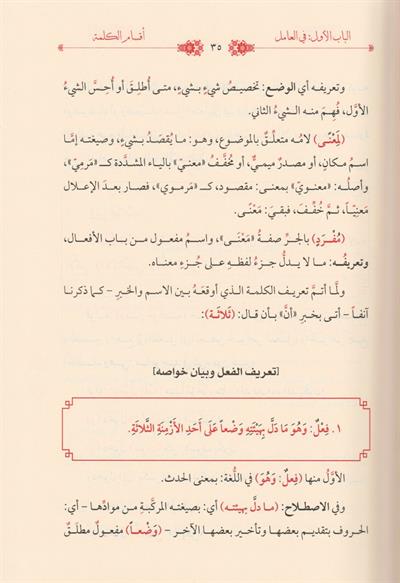 الباب الأول: في العامل
٣٥
أقسام الكلمة
وتعريفه أي الوضع: تخصيصُ شيءٍ بشيءٍ، متى أُطلِقَ أو أُحِسَّ الشيءُ
الأوَّل، فُهِمَ منه الشيءُ الثاني.
(لِمَعْنًى) لامُه متعلِّقٌ بالموضوع، وهو: ما يُقصَدُ بشيءٍ، وصيغته إمَّا
اسمُ مكانٍ، أو مصدرٌ ميميٌّ، أو مُخفَّفُ «معنيّ» بالياء المشدَّدة كـ «مَرمِيّ»،
وأصلُه: «معنويٌ» بمعنى: مقصود، كـ «مَرمويٍ»، فصار بعدَ الإعلال
مَعنِيّاً، ثمَّ خُفِّفَ، فبقيَ: مَعْنًى.
(مُفْرَدٍ) بالجرِّ صفةُ «مَعْنًى»، واسمُ مفعول من باب الأفعال،
وتعريفُه: ما لا يدلُّ جزءُ لفظِهِ على جُزءِ معناه.
ولمَّا أتمَّ تعريف الكلمة الذي أوقعَهُ بين الاسم والخبرِ – كما ذكرنا
آنفاً – أتى بخبرِ «أنَّ» بأن قال: (ثَلَاثَةٌ):
[تعريف الفعل وبيان خواصه]
١. فِعْلٌ: وَهُوَ مَا دَلَّ بِهَيْئَتِهِ وَضْعاً عَلَى أَحَدِ الأَزْمِنَةِ الثَّلَاثَةِ.
الأوَّلُ منها (فِعلٌ: وَهُوَ) في اللُّغة: بمعنى الحدث.
وفي الاصطلاح: (ما دلَّ بهيئته) أي: بصيغته المركَّبةِ من موادِّها – أي:
الحروف بتقديم بعضها وتأخير بعضها الآخر – (وَضْعاً) مفعولٌ مطلَقٌ